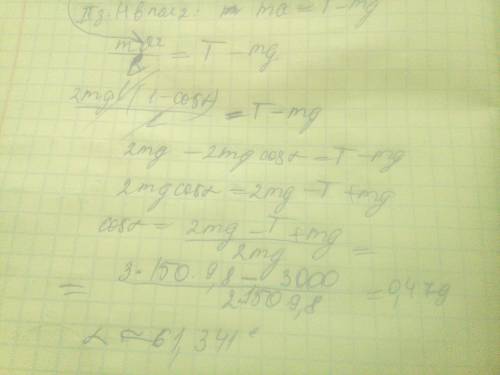 II з. Н в пасг: ma = T - mg
mv²/l = T - mg
2mgl(1-cosα)/l = T - mg
2mg - 2mg cosα = T - mg
2mg cosα = 2mg - T + mg
cosα = (2mg - T + mg)/2mg =
= (3·150·9,8 - 3000)/(2·150·9,8) = 0,479
α ≈ 61,341°